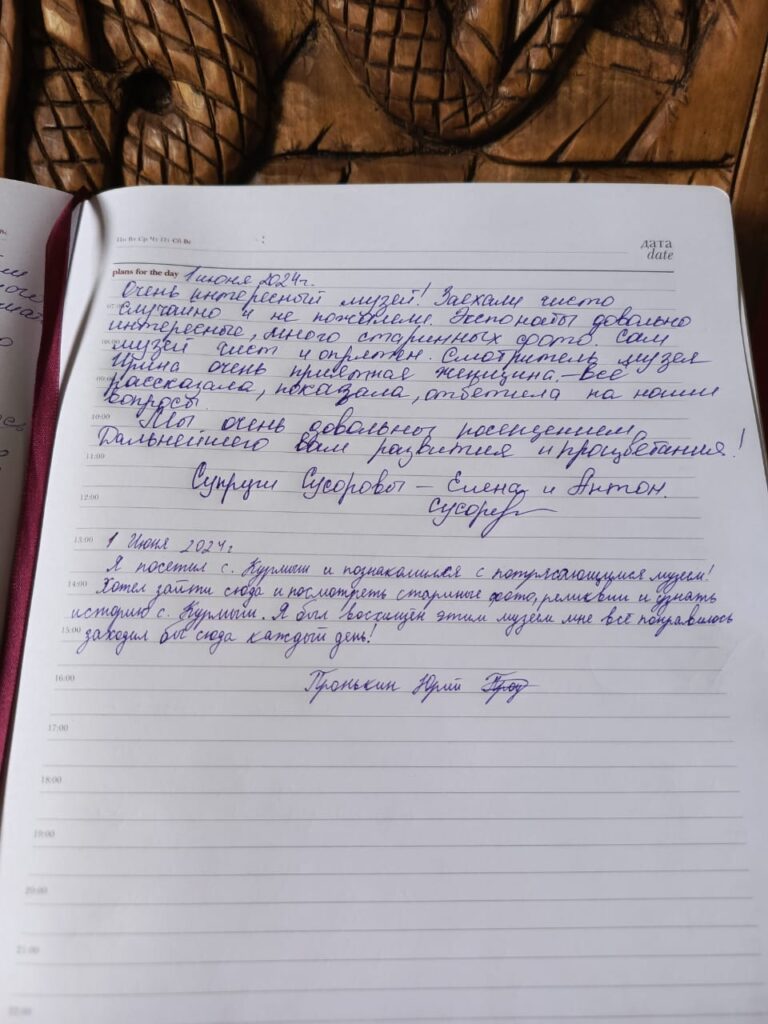 Пн Вт Ср Чт Пт Сб Вс
дата
date
plans for the day 1 июня 2024г.
Очень интересный музей! Заехали чисто
случайно и не пожалели. Экспонаты довольно
интересные, много старинных фото. Сам
музей чист и опрятен. Смотритель музея
Ирина очень приятная женщина. – Всё
рассказала, показала, ответила на наши
вопросы.
10:00
Мы очень довольны посещением.
Дальнейшего вам развития и процветания!
11:00
Супруги Сусоровы – Елена и Антон.
12:00
Сусоров
13:00
1 Июня 2024г
Я посетил с. Курмыш и познакомился с потрясающимся музеем!
14:00
Хотел зайти сюда и посмотреть стариные фото, реликвии и узнать
историю с. Курмыш. Я был восхищён этим музеем мне всё понравилось
15:00
заходил бы сюда каждый день!
16:00
Пронькин Юрий
17:00
18:00
19:00
20:00
21:00
22:00